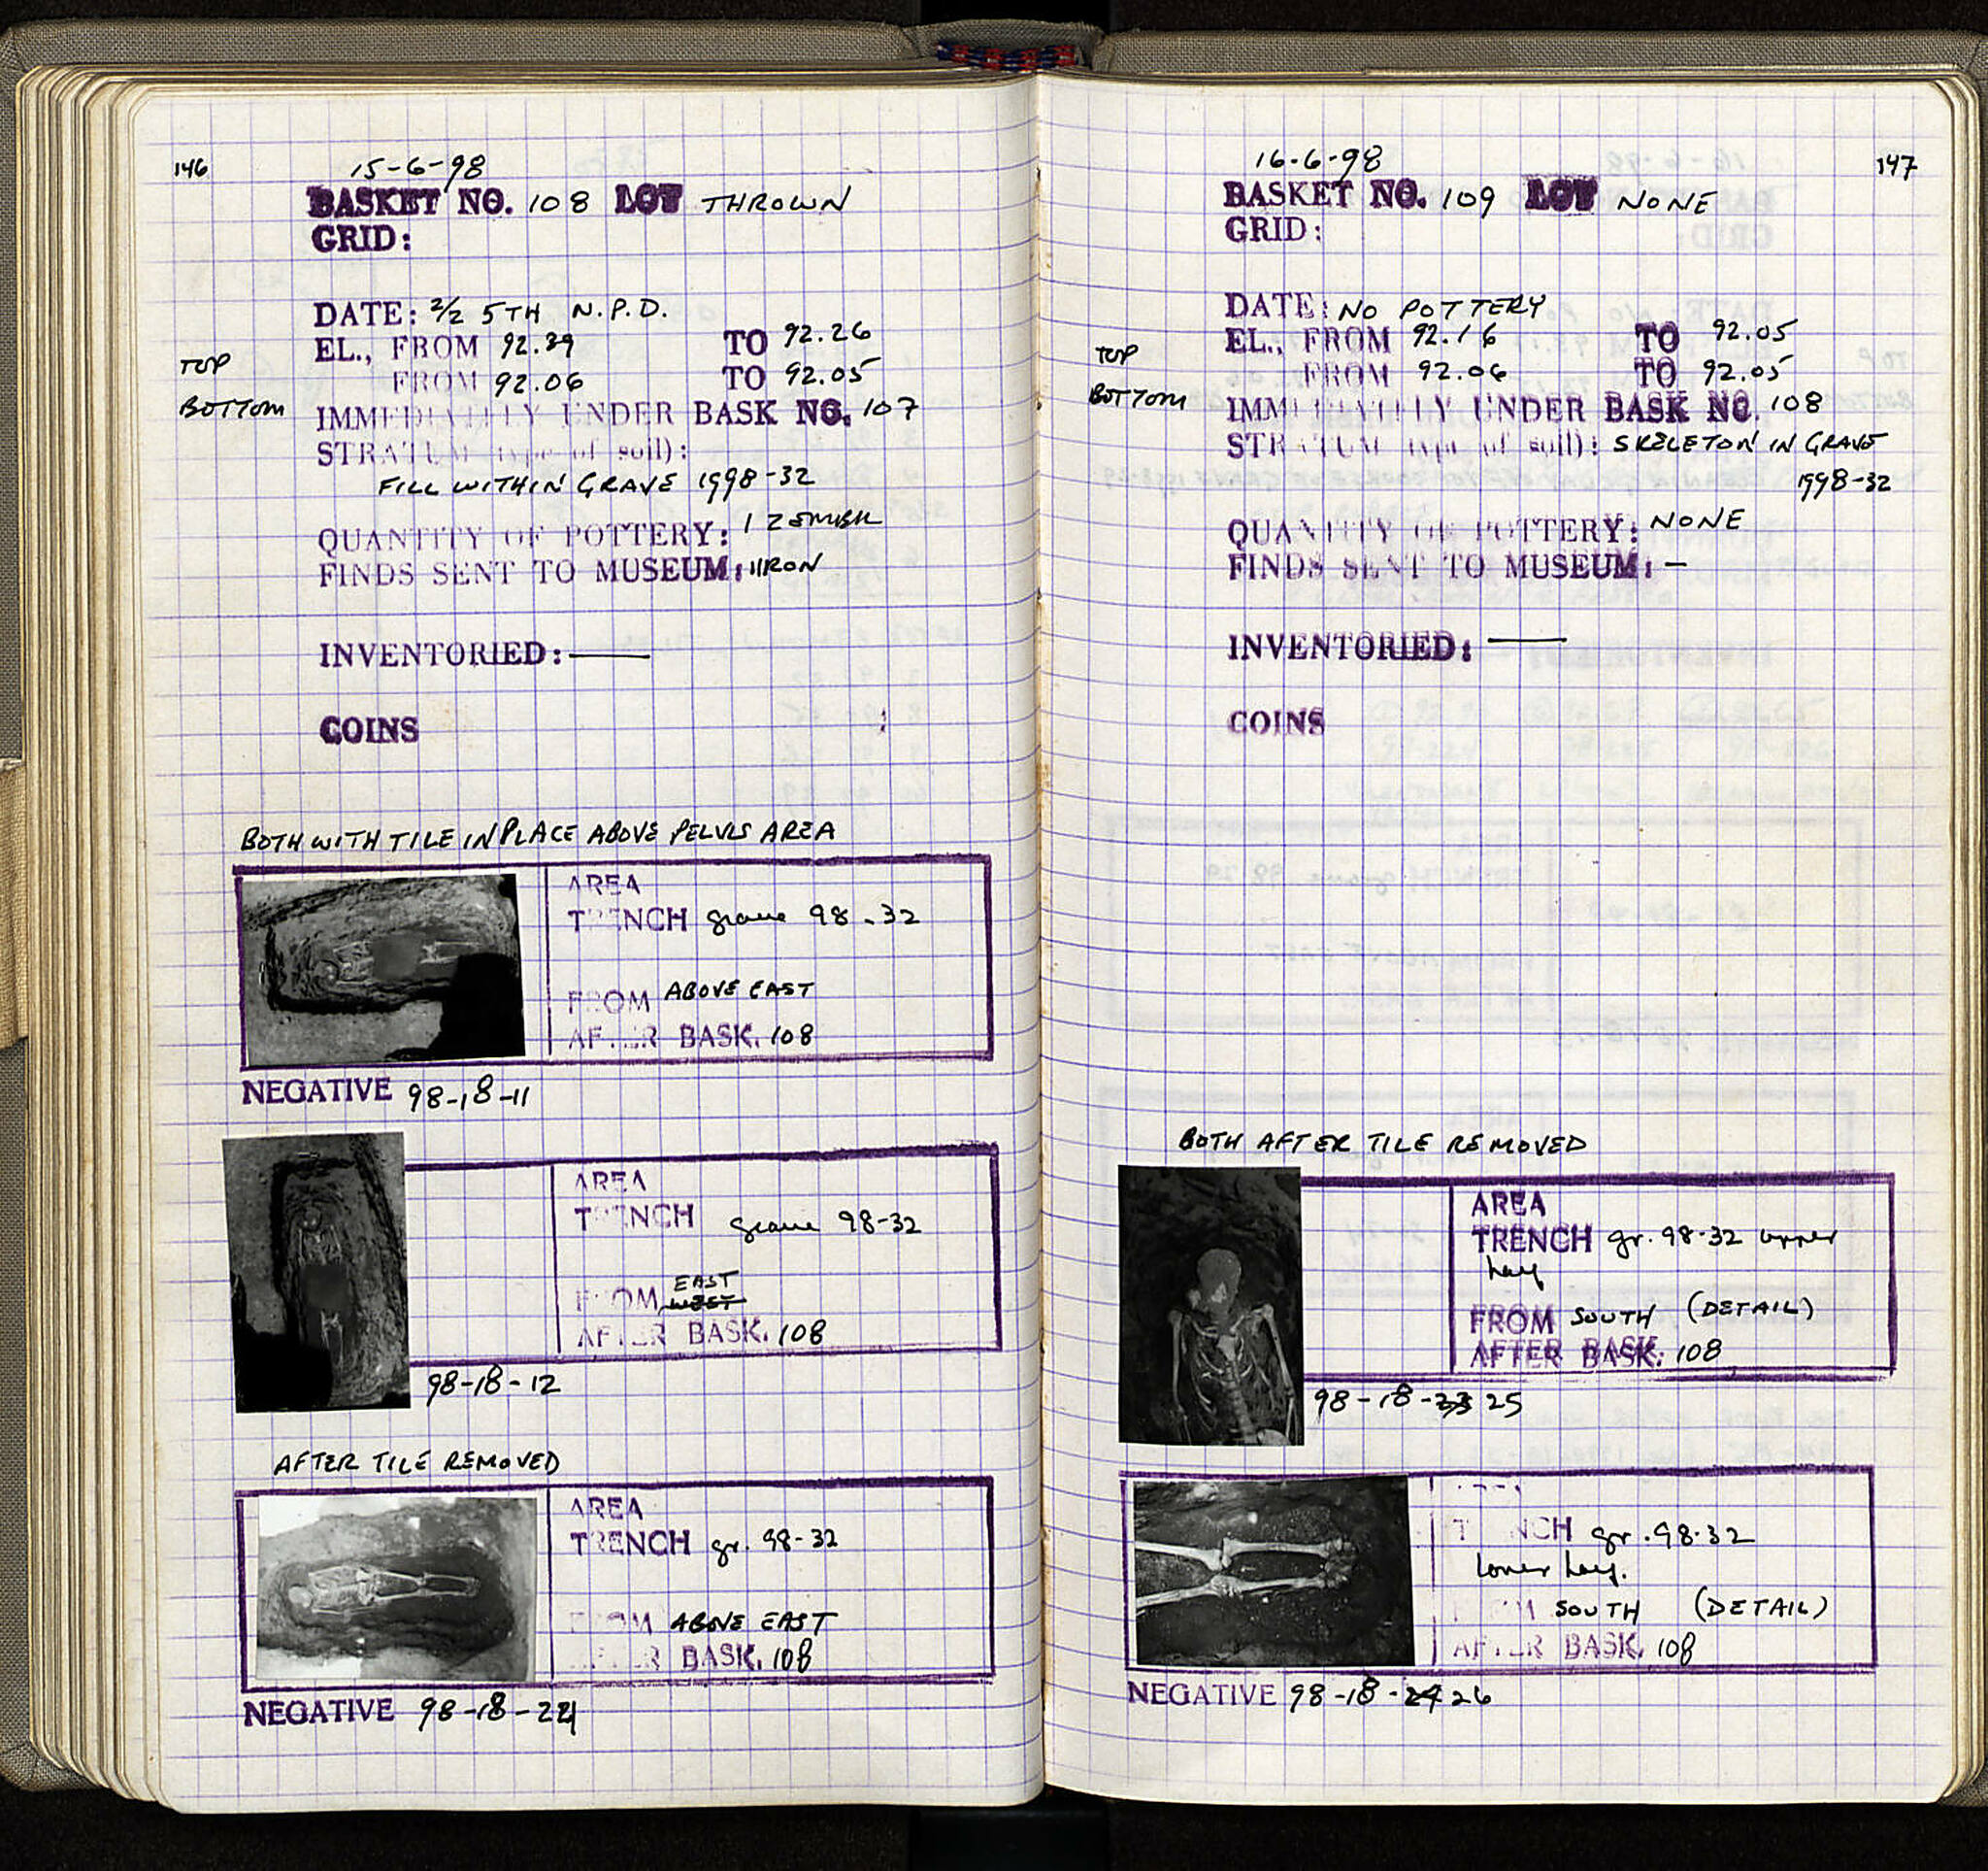 146
15-6-98
BASKET NO. 108 LOT THROWN
GRID:
DATE: 2/2 5TH N.P.D.
TOP
EL., FROM 92.39 TO 92.26
BOTTOM
FROM 92.06 TO 92.05
IMMEDIATELY UNDER BASK NO. 107
STRATUM (type of soil):
FILL WITHIN GRAVE 1998-32
QUANTITY OF POTTERY: 1 ZEMBIL
FINDS SENT TO MUSEUM: 1 IRON
INVENTORIED: —
COINS
BOTH WITH TILE IN PLACE ABOVE PELVIS AREA
AREA
TRENCH grave 98-32
FROM ABOVE EAST
AFTER BASK. 108
NEGATIVE 98-18-11
AREA
TRENCH grave 98-32
FROM WEST EAST
AFTER BASK. 108
98-18-12
AFTER TILE REMOVED
AREA
TRENCH gr. 98-32
FROM ABOVE EAST
AFTER BASK. 108
NEGATIVE 98-18-
147
16-6-98
BASKET NO. 109 LOT NONE
GRID:
DATE: NO POTTERY
TOP
EL., FROM 92.16 TO 92.05
BOTTOM
FROM 92.06 TO 92.05
IMMEDIATELY UNDER BASK NO. 108
STRATUM (type of soil): SKELETON IN GRAVE
1998-32
QUANTITY OF POTTERY: NONE
FINDS SENT TO MUSEUM: —
INVENTORIED: —
COINS
BOTH AFTER TILE REMOVED
AREA
TRENCH gr. 98-32 upper
half
FROM SOUTH (DETAIL)
AFTER BASK. 108
98-18-23 25
TRENCH gr. 98-32
lower half.
FROM SOUTH (DETAIL)
AFTER BASK. 108
NEGATIVE 98-18-24 26